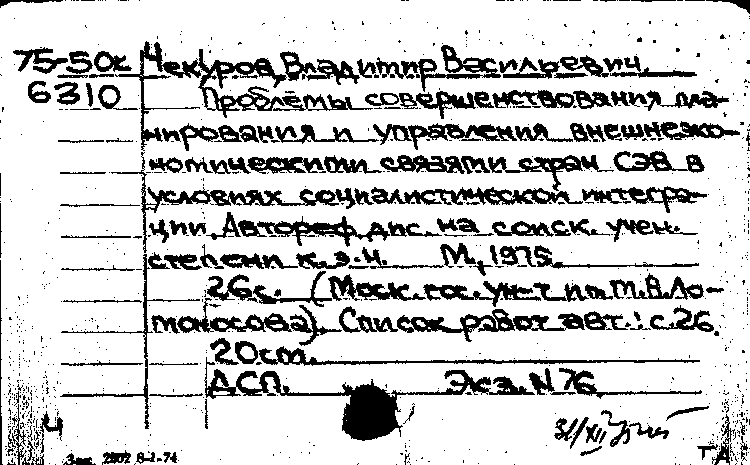 75-50к Чекуров, Владимир Васильевич.
6310 Проблемы совершенствования пла-
нирования и управления внешнеэко-
номическими связями стран СЭВ в
условиях социалистической интегра-
ции. Автореф. дис. на соиск. учен.
степени к.э.н. М., 1975.
26с. (Моск. гос. ун-т им. М.В. Ло-
моносова). Список работ авт.: с.26.
20см.
ДСП. Экз. N 76.
Ч 31/XII
Зак. 2902 8-1-74